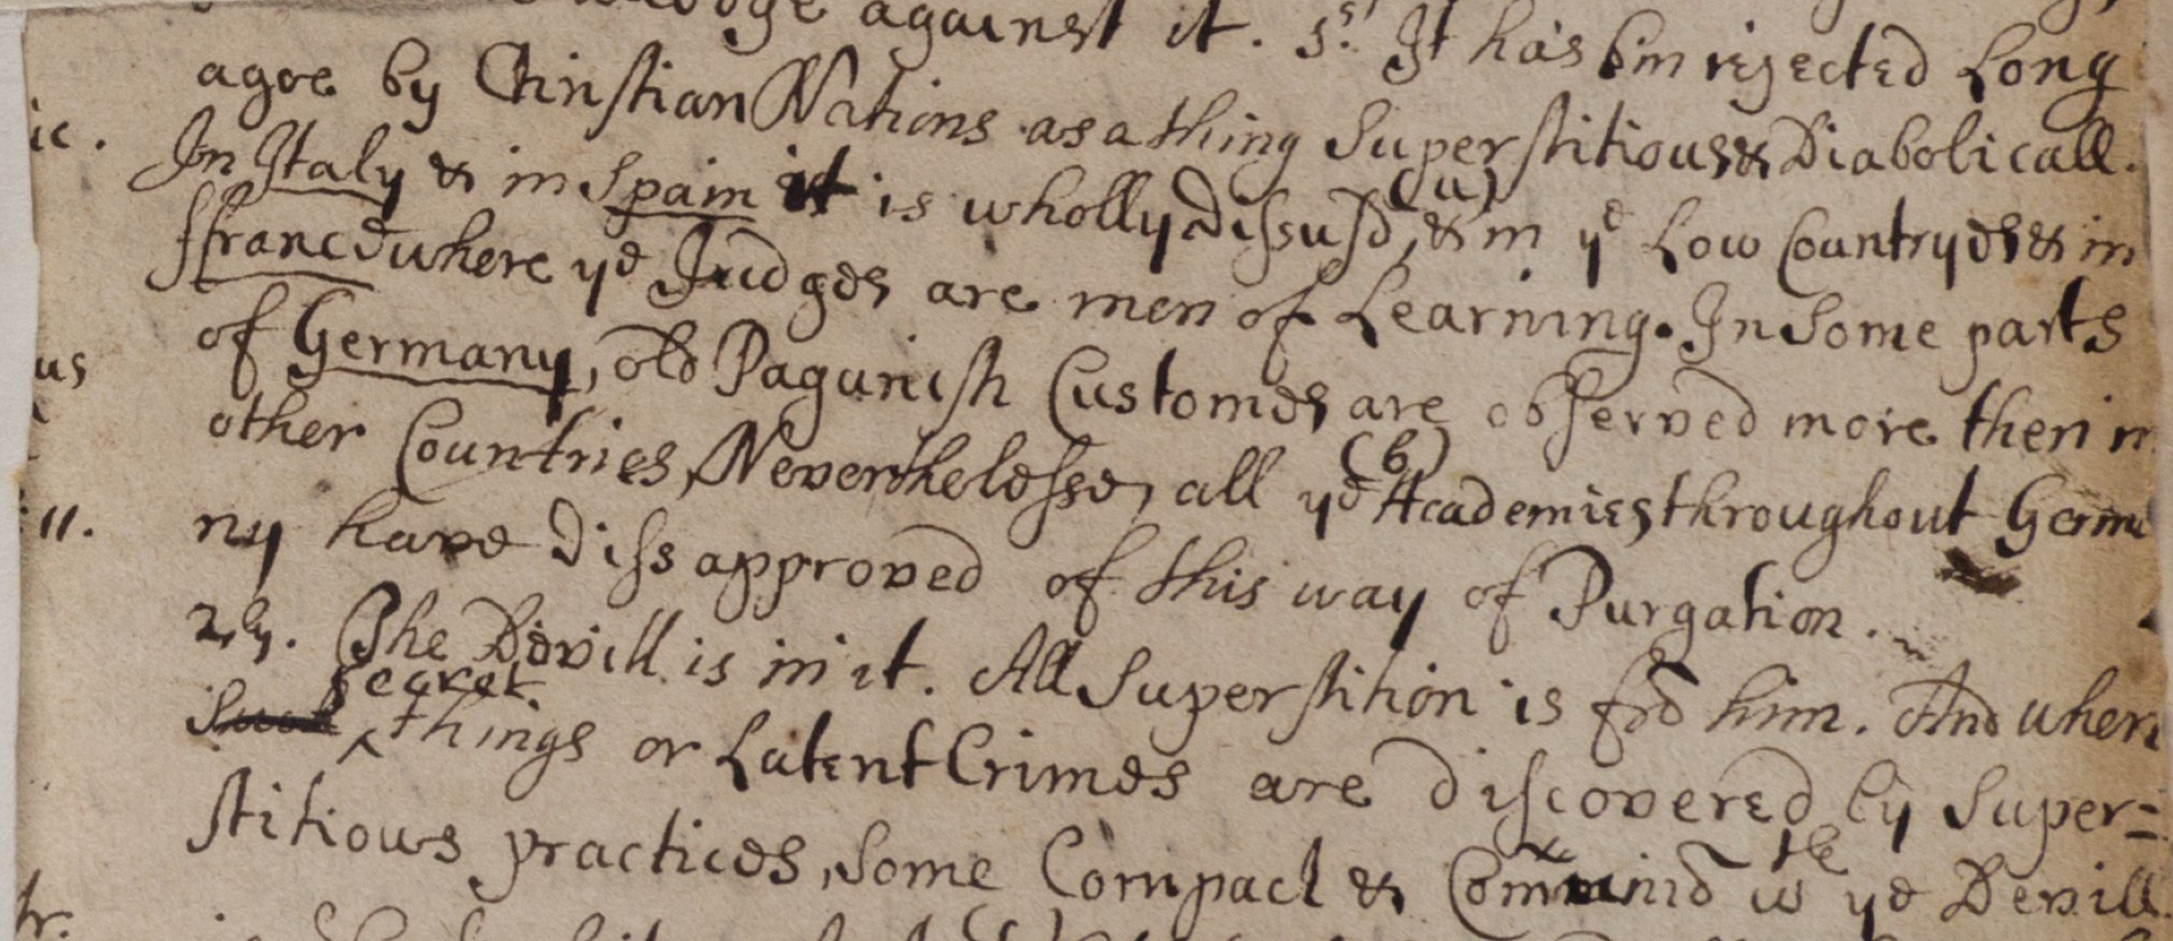 against it. 5ly. It has bin rejected Long
agoe by Christian Nations as a thing Superstitious & Diabolicall.
In Italy & in Spain it is wholly dissusd, (u) & in ye Low Countryes & in
ffrance where ye Judges are men of Learning. In Some parts
of Germany, old Paganish Customes are observed more then in
other Countries, Neverthelesse, all ye (b) Academies throughout Germa
ny have dissapproved of this way of Purgation.
2ly. The Devill is in it. All Superstition is fro him. And when
secret
things or Latent Crimes are discovered by Super=
stitious practices, Some Compact & Comunio wth ye Devill
ic.
us
11.
tr.